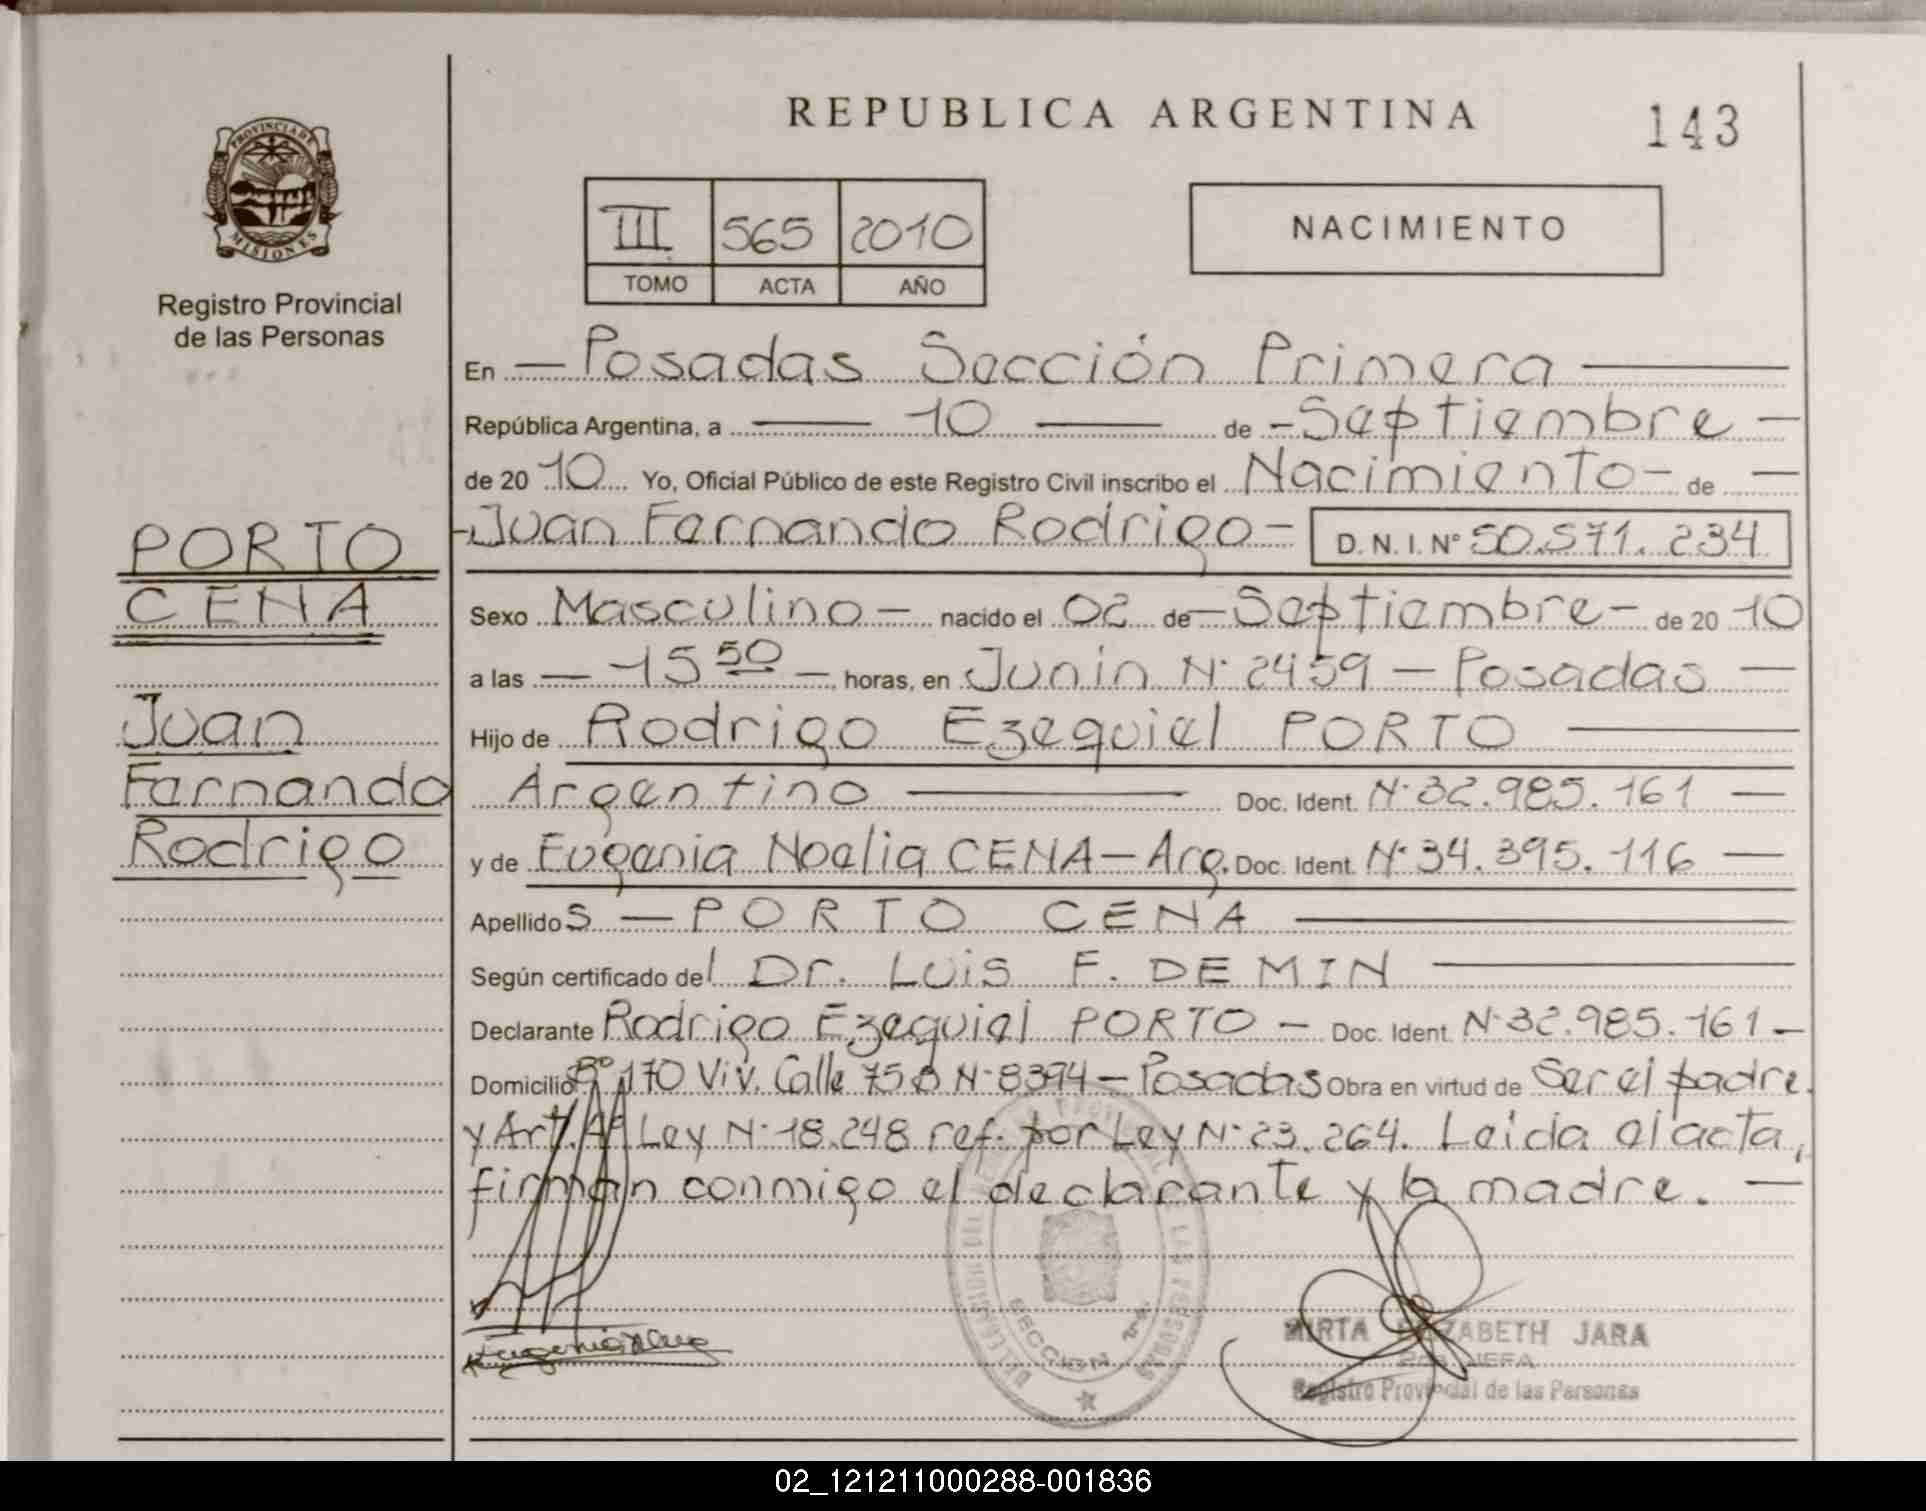 REPUBLICA ARGENTINA
143
PROVINCIA DE
MISIONES
Registro Provincial
de las Personas
III 565 2010
TOMO ACTA AÑO
NACIMIENTO
En Posadas Sección Primera
República Argentina, a 10 de Septiembre
de 20 10 Yo, Oficial Público de este Registro Civil inscribo el Nacimiento de
Juan Fernando Rodrigo D.N.I. Nº 50.571.234
PORTO
CENA
Juan
Fernando
Rodrigo
Sexo Masculino nacido el 02 de Septiembre de 20 10
a las 15 50 horas, en Junín Nº 2459 - Posadas
Hijo de Rodrigo Ezequiel PORTO
Argentino Doc. Ident. Nº 32.985.161
y de Eugenia Noelia CENA - Arg. Doc. Ident. Nº 34.395.116
Apellidos PORTO CENA
Según certificado del Dr. LUIS F. DEMIN
Declarante Rodrigo Ezequiel PORTO - Doc. Ident. Nº 32.985.161
Domicilio Bº 170 Viv. Calle 75 B Nº 8394 - Posadas Obra en virtud de Ser el padre.
y Art. 4º Ley Nº 18.248 ref. por Ley Nº 23.264. Leida el acta,
firman conmigo el declarante y la madre.
SECCION 1a.
MIRTA ELIZABETH JARA
2da JEFA
Registro Provincial de las Personas
02_121211000288-001836